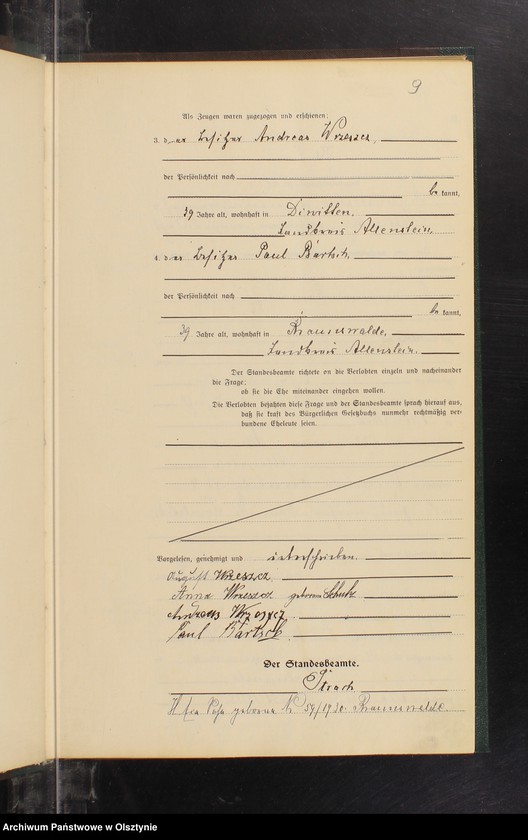 9
Als Zeugen waren zugezogen und erschienen:
3. der Besitzer Andreas Wrzescz,
der Persönlichkeit nach
be kannt,
39 Jahre alt, wohnhaft in Diwitten,
Landkreis Allenstein,
4. der Besitzer Paul Bartsch,
der Persönlichkeit nach
be kannt,
39 Jahre alt, wohnhaft in Braunswalde,
Landkreis Allenstein.
Der Standesbeamte richtete an die Verlobten einzeln und nacheinander
die Frage:
ob sie die Ehe miteinander eingehen wollen.
Die Verlobten bejahten diese Frage und der Standesbeamte sprach hierauf aus,
daß sie kraft des Bürgerlichen Gesetzbuchs nunmehr rechtmäßig ver-
bundene Eheleute seien.
Vorgelesen, genehmigt und unterschrieben.
August Wrzescz
Anna Wrzescz geborene Schulz
Andreas Wrzescz
Paul Bartsch
Der Standesbeamte.
geboren N 59/1930 Braunswalde.
Archiwum Państwowe w Olsztynie